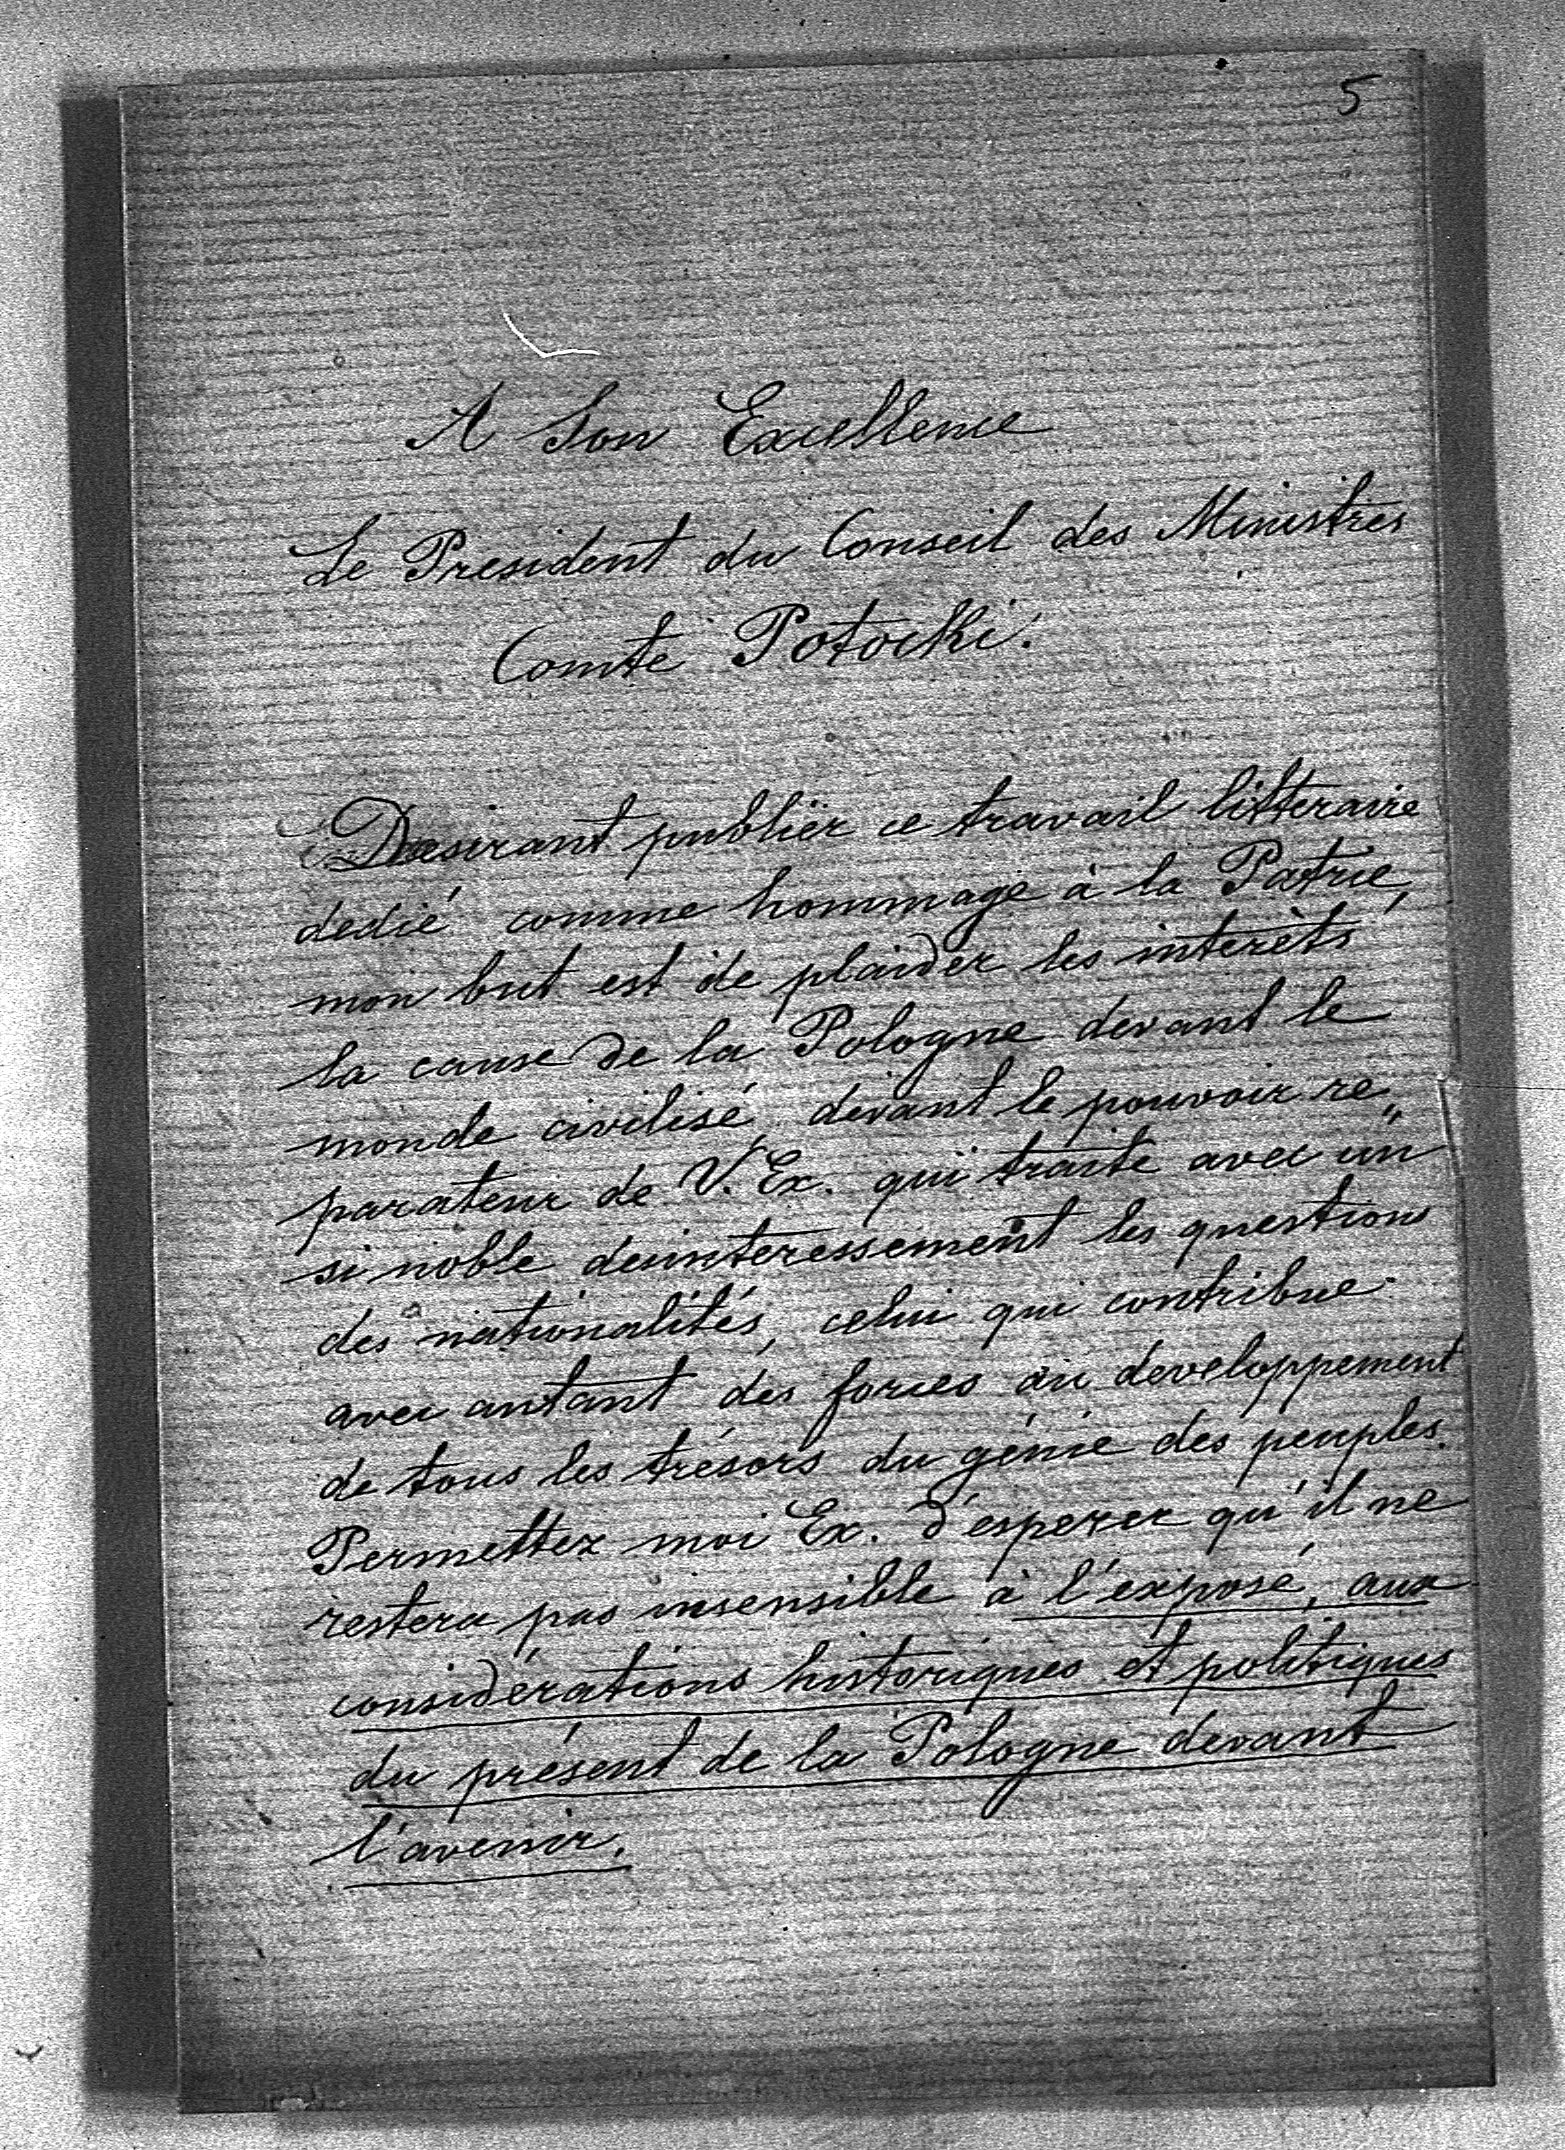 5
A Son Excellence
Le President du Conseil des Ministres
Comte Potocki.
Desirant publiër ce travail litteraire
dedié comme hommage à la Patrie,
mon but est de plaider les interèts
la cause de la Pologne devant le
monde civilisé, devant le pouvoir re„
parateur de V. Ex. qui traite avec un
si noble desinteressement les questions
des nationalités, celui qui contribue
avec autant des forces au developpement
de tous les trésors du génie des peuples.
Permettez moi Ex. d'esperer qu'il ne
restera pas insensible à l'exposé, aux
considérations historiques et politiques
du présent de la Pologne devant
l'avenir.